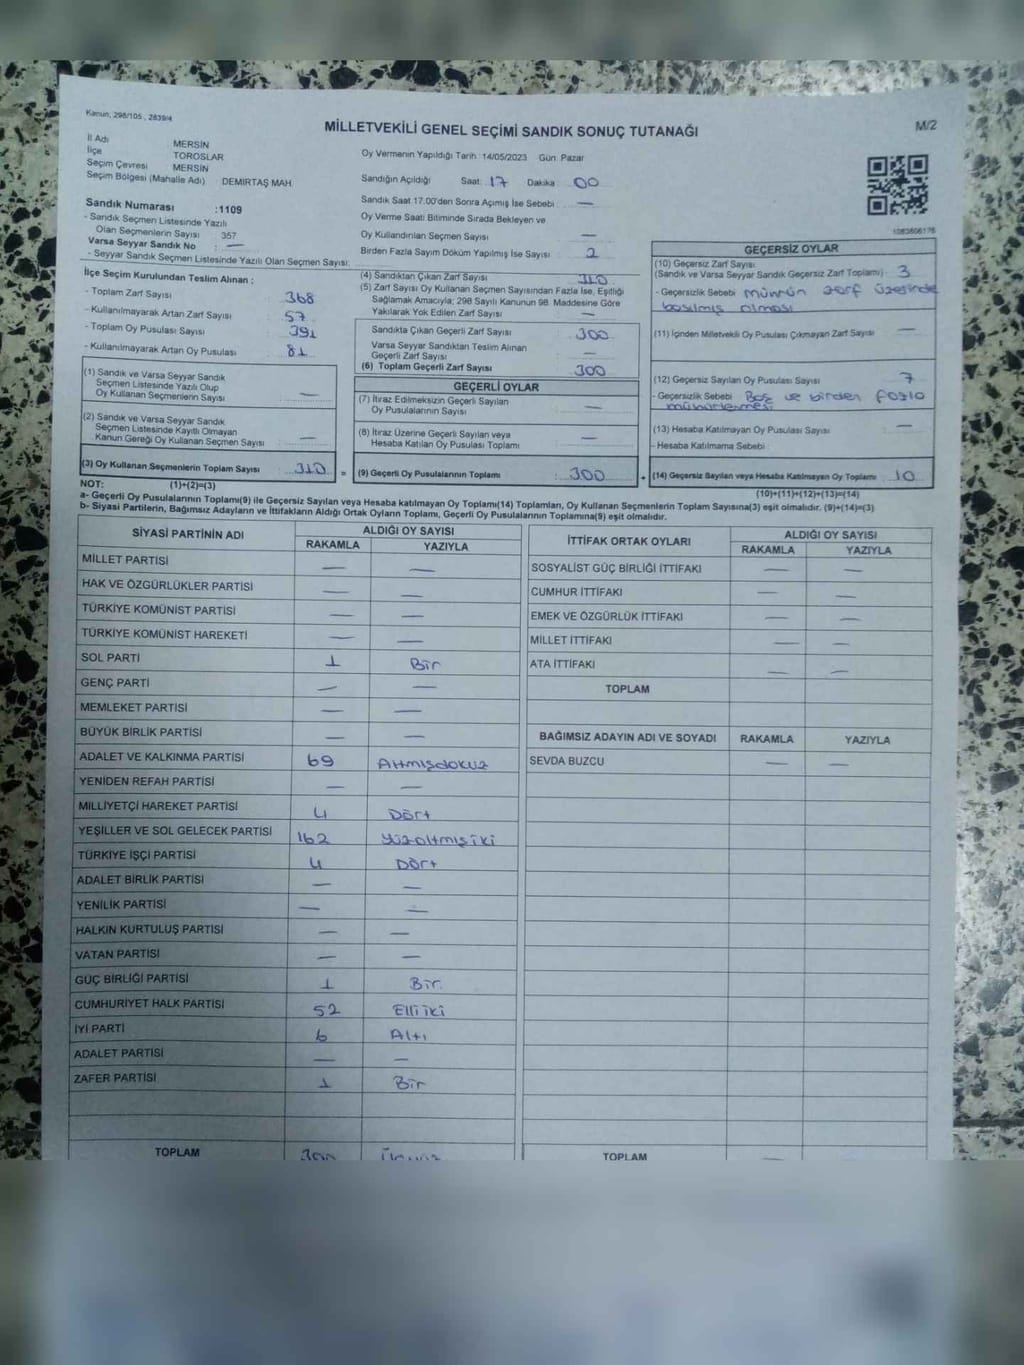 Kanun, 298/105 , 2839/4
MİLLETVEKİLİ GENEL SEÇİMİ SANDIK SONUÇ TUTANAĞI
M/2
İl Adı MERSİN
İlçe TOROSLAR
Seçim Çevresi MERSİN
Seçim Bölgesi (Mahalle Adı) DEMİRTAŞ MAH.
Oy Vermenin Yapıldığı Tarih :14/05/2023 Gün: Pazar
Sandığın Açıldığı Saat: 17 Dakika 00
Sandık Saat 17.00'den Sonra Açımış İse Sebebi —
Oy Verme Saati Bitiminde Sırada Bekleyen ve
Oy Kullandırılan Seçmen Sayısı —
Birden Fazla Sayım Döküm Yapılmış İse Sayısı 2
Sandık Numarası :1109
- Sandık Seçmen Listesinde Yazılı
Olan Seçmenlerin Sayısı : 357
Varsa Seyyar Sandık No : —
- Seyyar Sandık Seçmen Listesinde Yazılı Olan Seçmen Sayısı:
İlçe Seçim Kurulundan Teslim Alınan :
- Toplam Zarf Sayısı 368
- Kullanılmayarak Artan Zarf Sayısı 57
- Toplam Oy Pusulası Sayısı 391
- Kullanılmayarak Artan Oy Pusulası 81
(1) Sandık ve Varsa Seyyar Sandık
Seçmen Listesinde Yazılı Olup
Oy Kullanan Seçmenlerin Sayısı —
(2) Sandık ve Varsa Seyyar Sandık
Seçmen Listesinde Kayıtlı Olmayan
Kanun Gereği Oy Kullanan Seçmen Sayısı —
(3) Oy Kullanan Seçmenlerin Toplam Sayısı 310 =
(4) Sandıktan Çıkan Zarf Sayısı 310
(5) Zarf Sayısı Oy Kullanan Seçmen Sayısından Fazla İse, Eşitliği
Sağlamak Amacıyla; 298 Sayılı Kanunun 98. Maddesine Göre
Yakılarak Yok Edilen Zarf Sayısı —
Sandıkta Çıkan Geçerli Zarf Sayısı 300
Varsa Seyyar Sandıktan Teslim Alınan
Geçerli Zarf Sayısı —
(6) Toplam Geçerli Zarf Sayısı 300
GEÇERLİ OYLAR
(7) İtiraz Edilmeksizin Geçerli Sayılan
Oy Pusulalarının Sayısı —
(8) İtiraz Üzerine Geçerli Sayılan veya
Hesaba Katılan Oy Pusulası Toplamı —
(9) Geçerli Oy Pusulalarının Toplamı 300 +
1083606176
GEÇERSİZ OYLAR
(10) Geçersiz Zarf Sayısı
(Sandık ve Varsa Seyyar Sandık Geçersiz Zarf Toplamı) 3
- Geçersizlik Sebebi mührün zarf üzerinde
basılmış olması
(11) İçinden Milletvekili Oy Pusulası Çıkmayan Zarf Sayısı —
(12) Geçersiz Sayılan Oy Pusulası Sayısı 7
- Geçersizlik Sebebi Boş ve birden fazla
mühürlenmesi
(13) Hesaba Katılmayan Oy Pusulası Sayısı —
- Hesaba Katılmama Sebebi
(14) Geçersiz Sayılan veya Hesaba Katılmayan Oy Toplamı 10
NOT: (1)+(2)=(3)
(10)+(11)+(12)+(13)=(14)
a- Geçerli Oy Pusulalarının Toplamı(9) ile Geçersiz Sayılan veya Hesaba katılmayan Oy Toplamı(14) Toplamları, Oy Kullanan Seçmenlerin Toplam Sayısına(3) eşit olmalıdır. (9)+(14)=(3)
b- Siyasi Partilerin, Bağımsız Adayların ve İttifakların Aldığı Ortak Oyların Toplamı, Geçerli Oy Pusulalarının Toplamına(9) eşit olmalıdır.
SİYASİ PARTİNİN ADI
ALDIĞI OY SAYISI
RAKAMLA YAZIYLA
MİLLET PARTİSİ — —
HAK VE ÖZGÜRLÜKLER PARTİSİ — —
TÜRKİYE KOMÜNİST PARTİSİ — —
TÜRKİYE KOMÜNİST HAREKETİ — —
SOL PARTİ 1 Bir
GENÇ PARTİ — —
MEMLEKET PARTİSİ — —
BÜYÜK BİRLİK PARTİSİ — —
ADALET VE KALKINMA PARTİSİ 69 Altmışdokuz
YENİDEN REFAH PARTİSİ — —
MİLLİYETÇİ HAREKET PARTİSİ 4 Dört
YEŞİLLER VE SOL GELECEK PARTİSİ 162 Yüzaltmışiki
TÜRKİYE İŞÇİ PARTİSİ 4 Dört
ADALET BİRLİK PARTİSİ — —
YENİLİK PARTİSİ — —
HALKIN KURTULUŞ PARTİSİ — —
VATAN PARTİSİ — —
GÜÇ BİRLİĞİ PARTİSİ 1 Bir
CUMHURİYET HALK PARTİSİ 52 Elliiki
İYİ PARTİ 6 Altı
ADALET PARTİSİ — —
ZAFER PARTİSİ 1 Bir
TOPLAM 300 Üçyüz
İTTİFAK ORTAK OYLARI
ALDIĞI OY SAYISI
RAKAMLA YAZIYLA
SOSYALİST GÜÇ BİRLİĞİ İTTİFAKI — —
CUMHUR İTTİFAKI — —
EMEK VE ÖZGÜRLÜK İTTİFAKI — —
MİLLET İTTİFAKI — —
ATA İTTİFAKI — —
TOPLAM
BAĞIMSIZ ADAYIN ADI VE SOYADI RAKAMLA YAZIYLA
SEVDA BUZCU — —
TOPLAM —